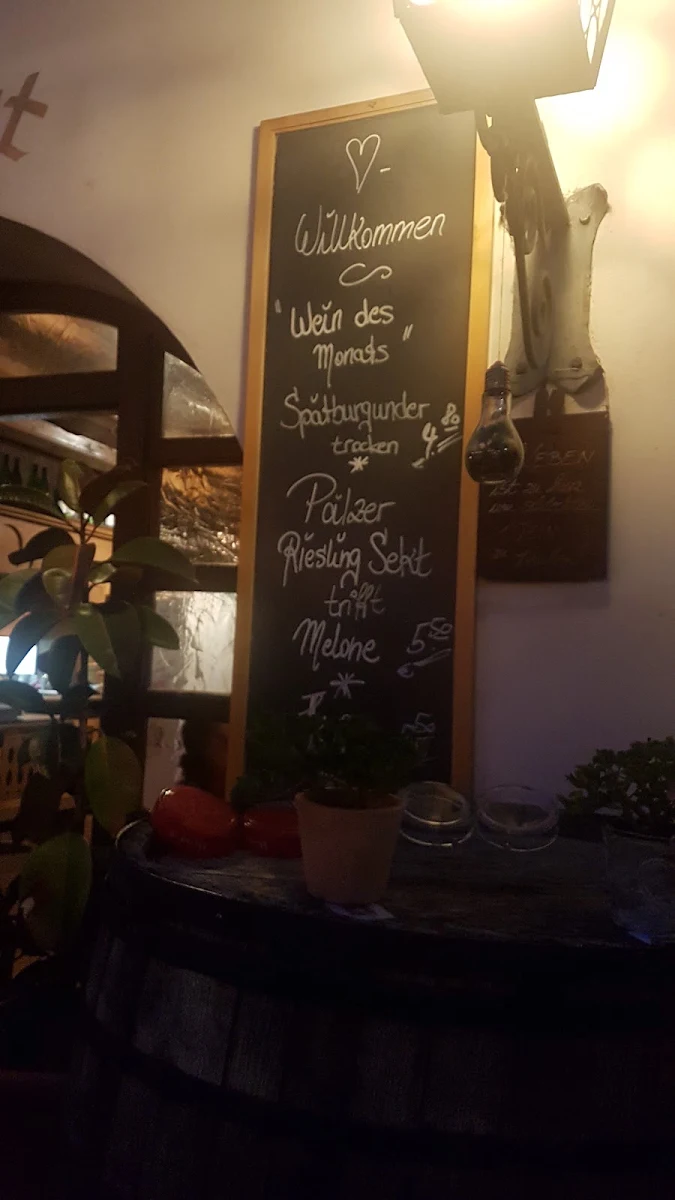 t
Willkommen
"Wein des
Monats"
Spätburgunder
trocken 4.80
Pälzer
Riesling Sekt
trifft
Melone 5.50
€
EBEN